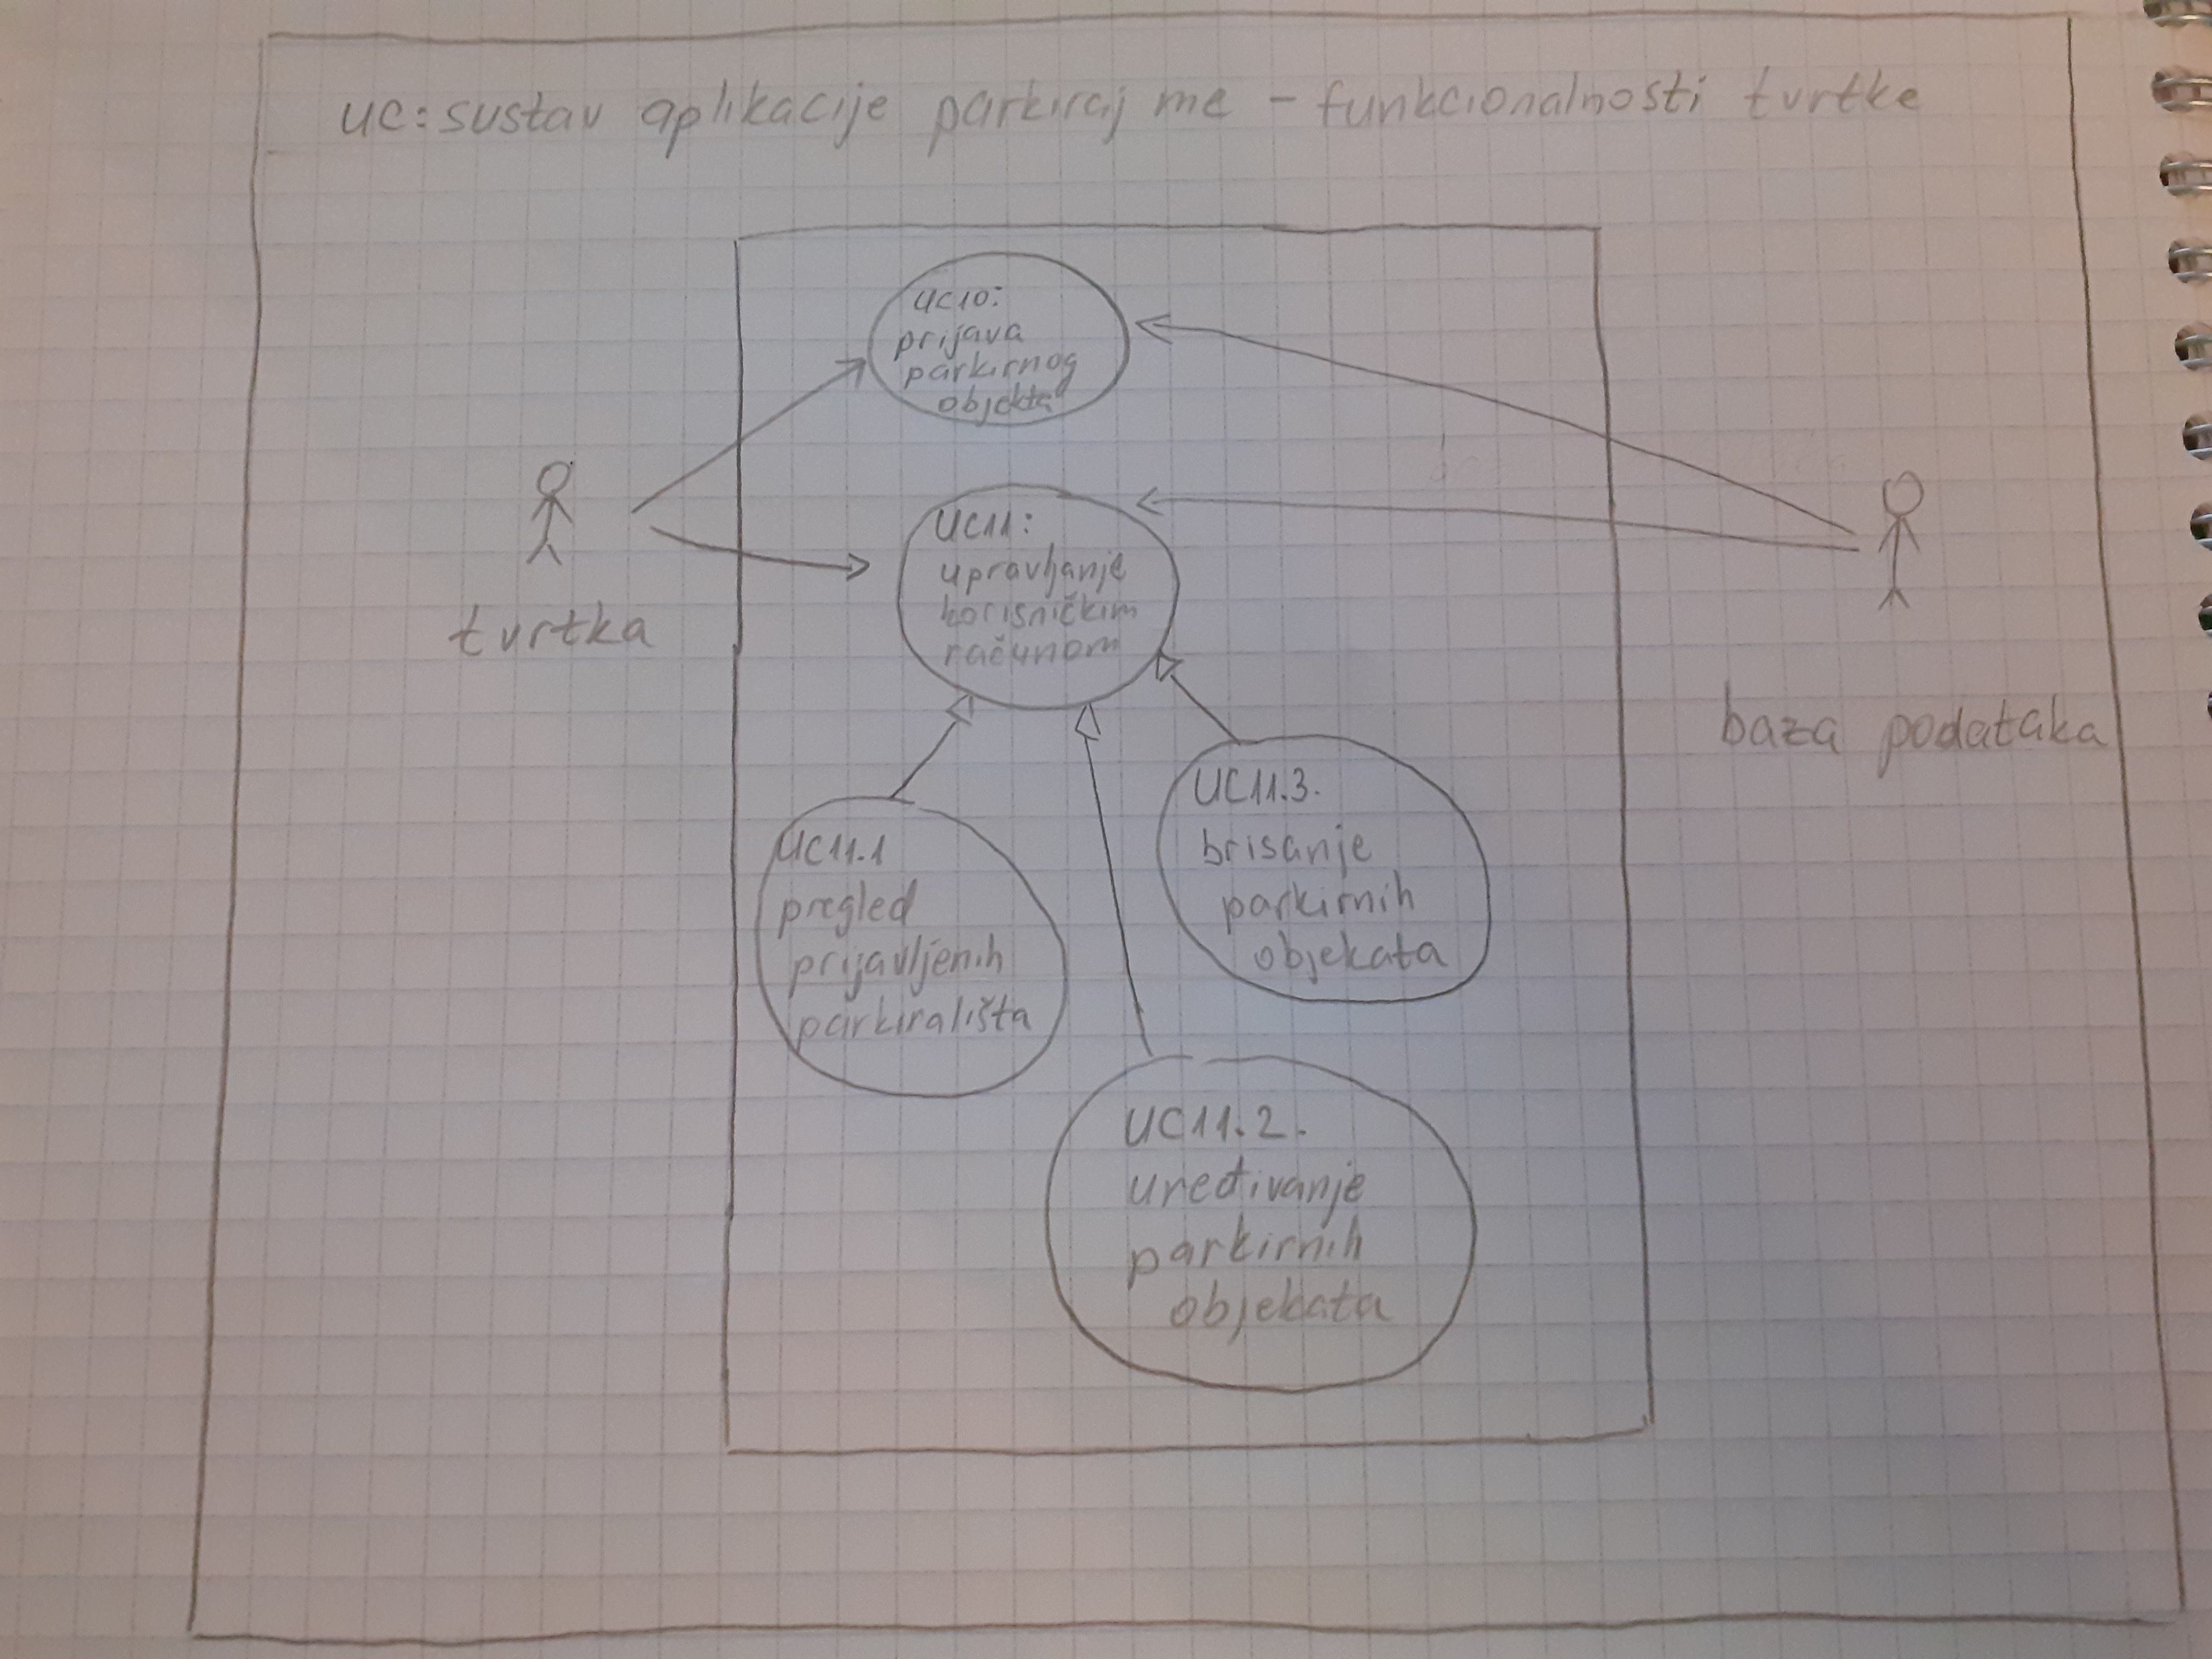 uc: sustav aplikacije parkiraj me - funkcionalnosti tvrtke
UC10:
prijava
parkirnog
objekta
UC11:
upravljanje
korisničkim
računom
tvrtka
baza podataka
UC11.1
pregled
prijavljenih
parkirališta
UC11.3.
brisanje
parkirnih
objekata
UC11.2.
uređivanje
parkirnih
objekata